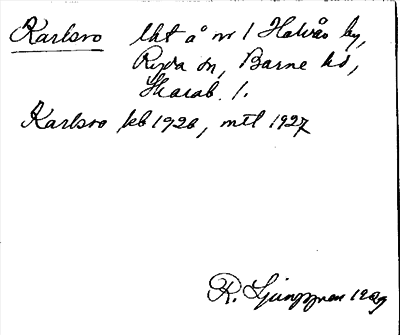 Karlsro lht å nr 1 Halvås by,
Ryda sn, Barne hd,
Skarab. l.
Karlsro kb 1926, mtl 1927
R. Ljunggren 1929